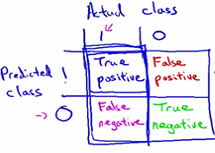 Actual class
1 0
Predicted class
1 True positive False positive
0 False negative True negative